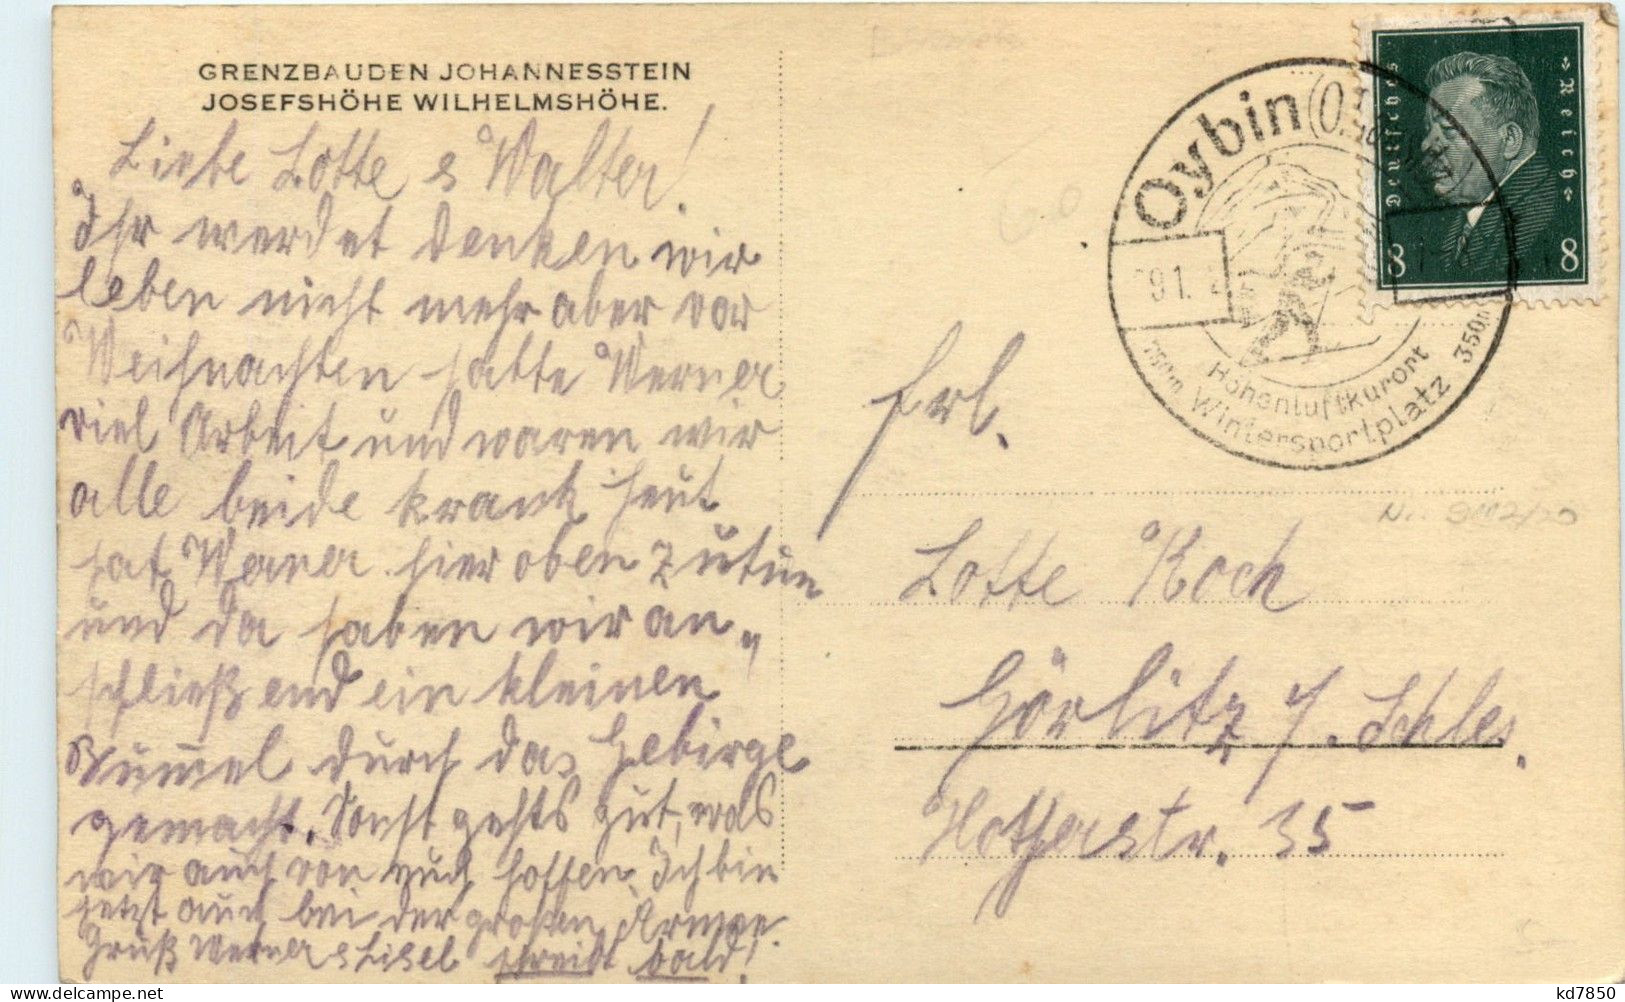 GRENZBAUDEN JOHANNESSTEIN
JOSEFSHÖHE WILHELMSHÖHE.
Liebe Lotte & Walter!
Ihr werdet denken wir
leben nicht mehr aber vor
Weihnachten hatte Werner
viel Arbeit und waren wir
alle beide krank heut
hat Werner hier oben zutun
und da haben wir an„
schließend ein kleinen
Bummel durch das Gebirge
gemacht. Sonst gehts gut, was
wir auch von Euch hoffen. Ich bin
jetzt auch bei der großen Armee.
Gruß Werner & Lisel schreibt bald!
Oybin
91.
Höhenluftkurort
Wintersportplatz
350m
Deutsches Reich
8 8
Frl.
Lotte Koch
Görlitz / . Schles.
Hotherstr. 35
kd7850